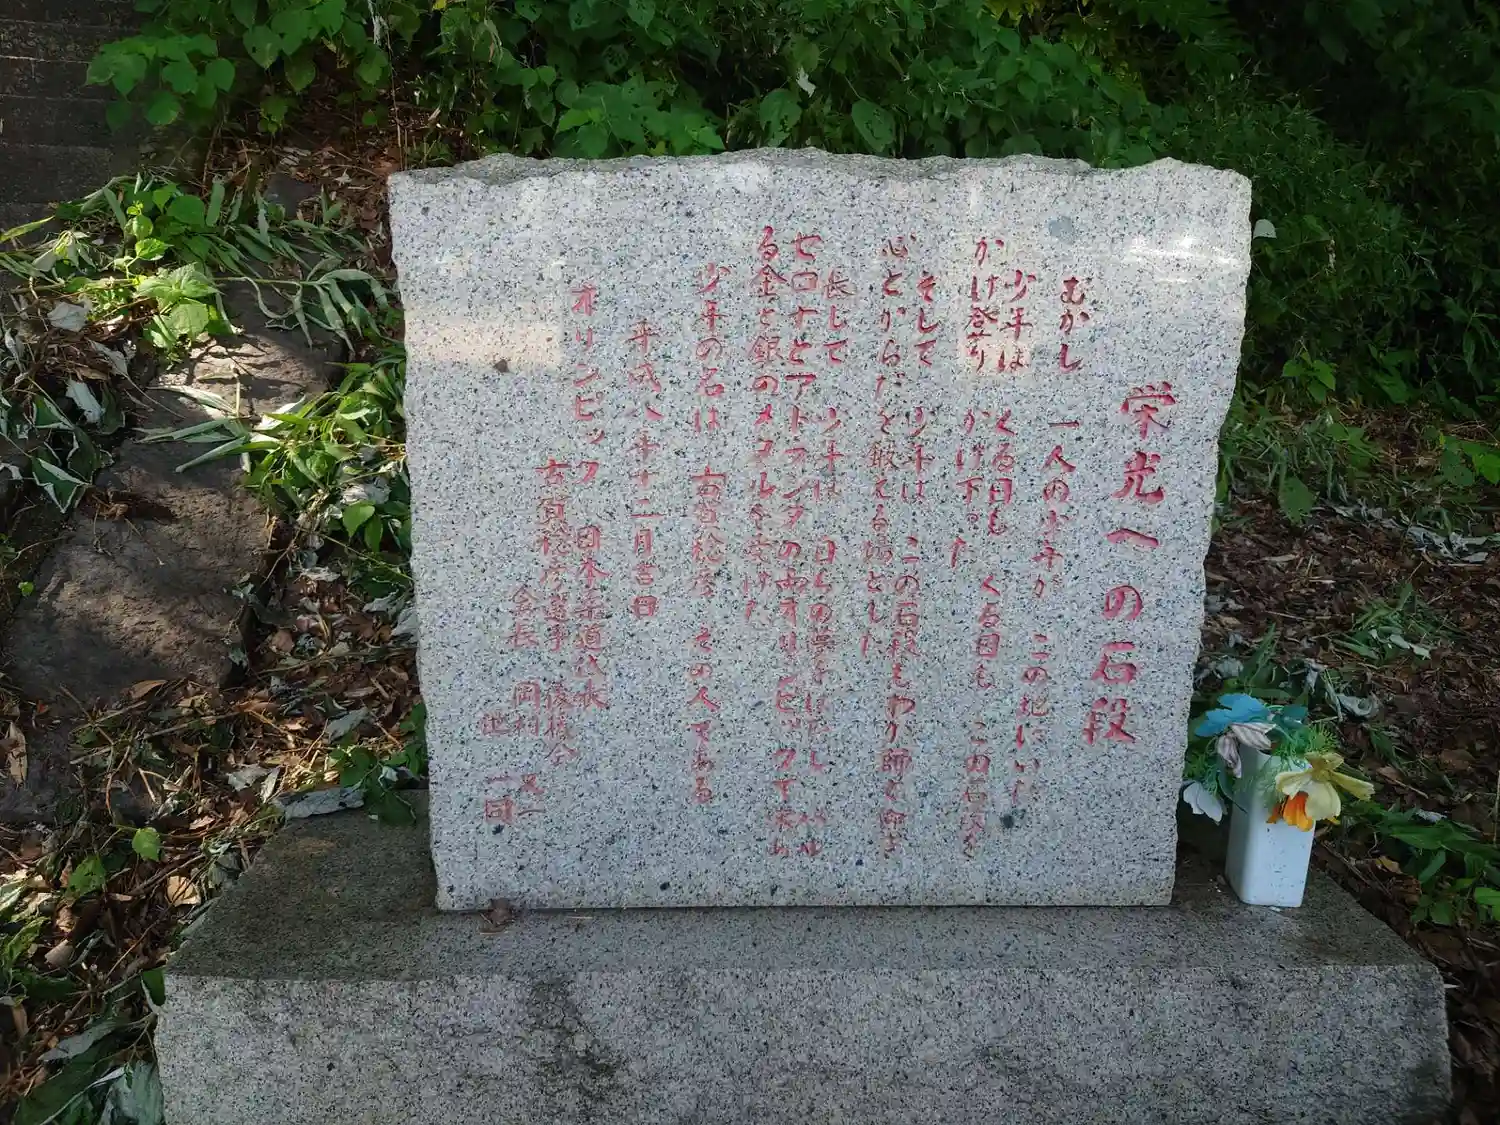 栄光への石段
むかし 一人の少年が この地にいた
少年は くる日も くる日も この石段を
かけ登り かけ下った
そして 少年は この石段をわが師と仰ぎ
心とからだを鍛える場とした
長じて 少年は 日ごろの夢を はたし バル
セロナとアトランタの両オリンピックで 永
る金と銀のメダルを受けた
少年の名は 古賀稔彦 その人である
平成八年十二月吉日
オリンピック 日本柔道代表
古賀稔彦選手 後援会
会長 岡村 又一
一同